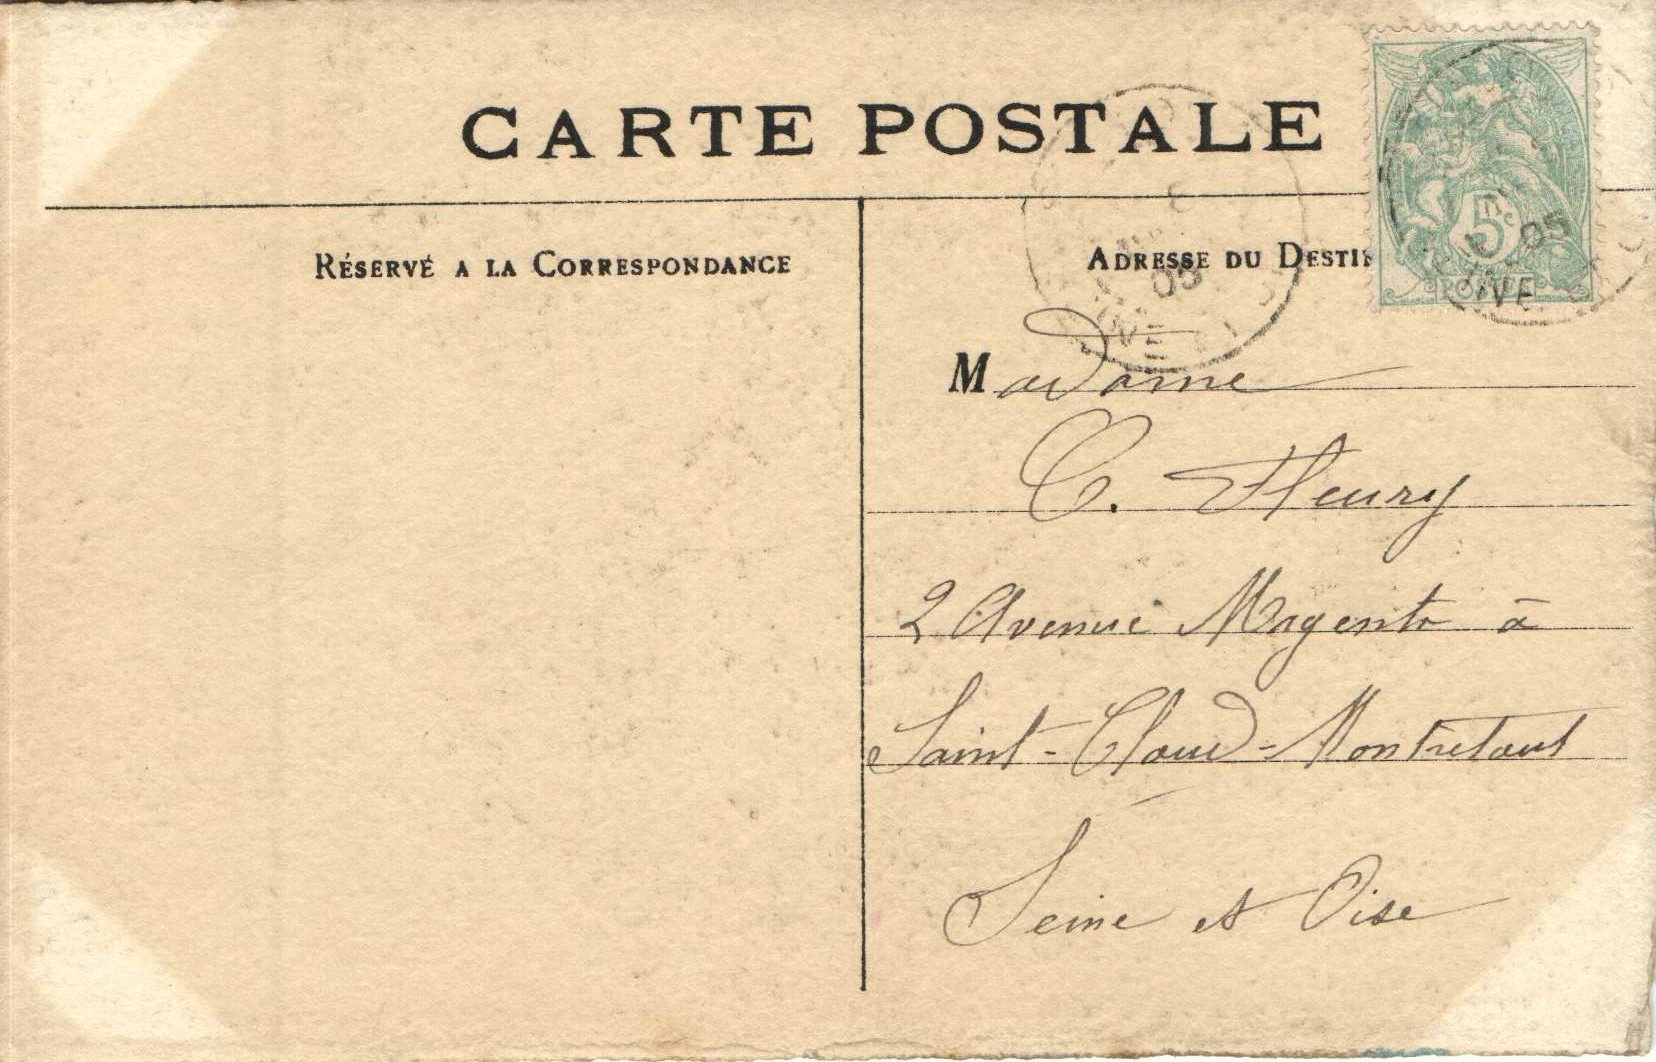 CARTE POSTALE
RÉSERVÉ A LA CORRESPONDANCE
ADRESSE DU DESTIN
5c
POSTE
05
05
Madame
C. Fleury
2 Avenue Magenta à
Saint-Cloud-Montretout
Seine et Oise